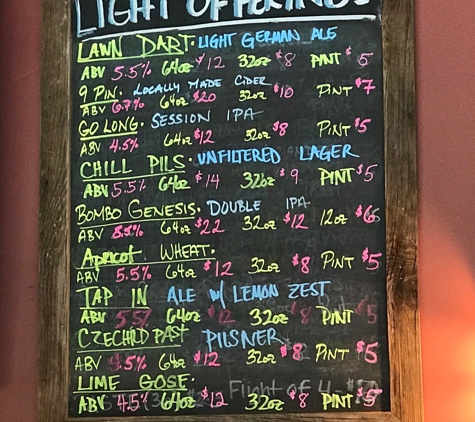 LIGHT OFFERINGS
LAWN DART. LIGHT GERMAN ALE
ABV 5.5% 64oz $12 32oz $8 PINT $5
9 PIN. LOCALLY MADE CIDER
ABV 6.7% 64oz $20 32oz $10 PINT $7
GO LONG. SESSION IPA
ABV 4.5% 64oz $12 32oz $8 PINT $5
CHILL PILS. UNFILTERED LAGER
ABV 5.5% 64oz $14 32oz $9 PINT $5
BOMBO GENESIS. DOUBLE IPA
ABV 64oz $22 32oz $12 12oz $6
APRICOT WHEAT.
ABV 5.5% 64oz $12 32oz $8 PINT $5
TAP IN ALE W/ LEMON ZEST
ABV 5.5% 64oz $12 32oz $8 PINT $5
CZECHILD PAST PILSNER
ABV 5.5% 64oz $12 32oz $8 PINT $5
LIME GOSE. Flight of 4
ABV 4.5% 64oz $12 32oz $8 PINT $5